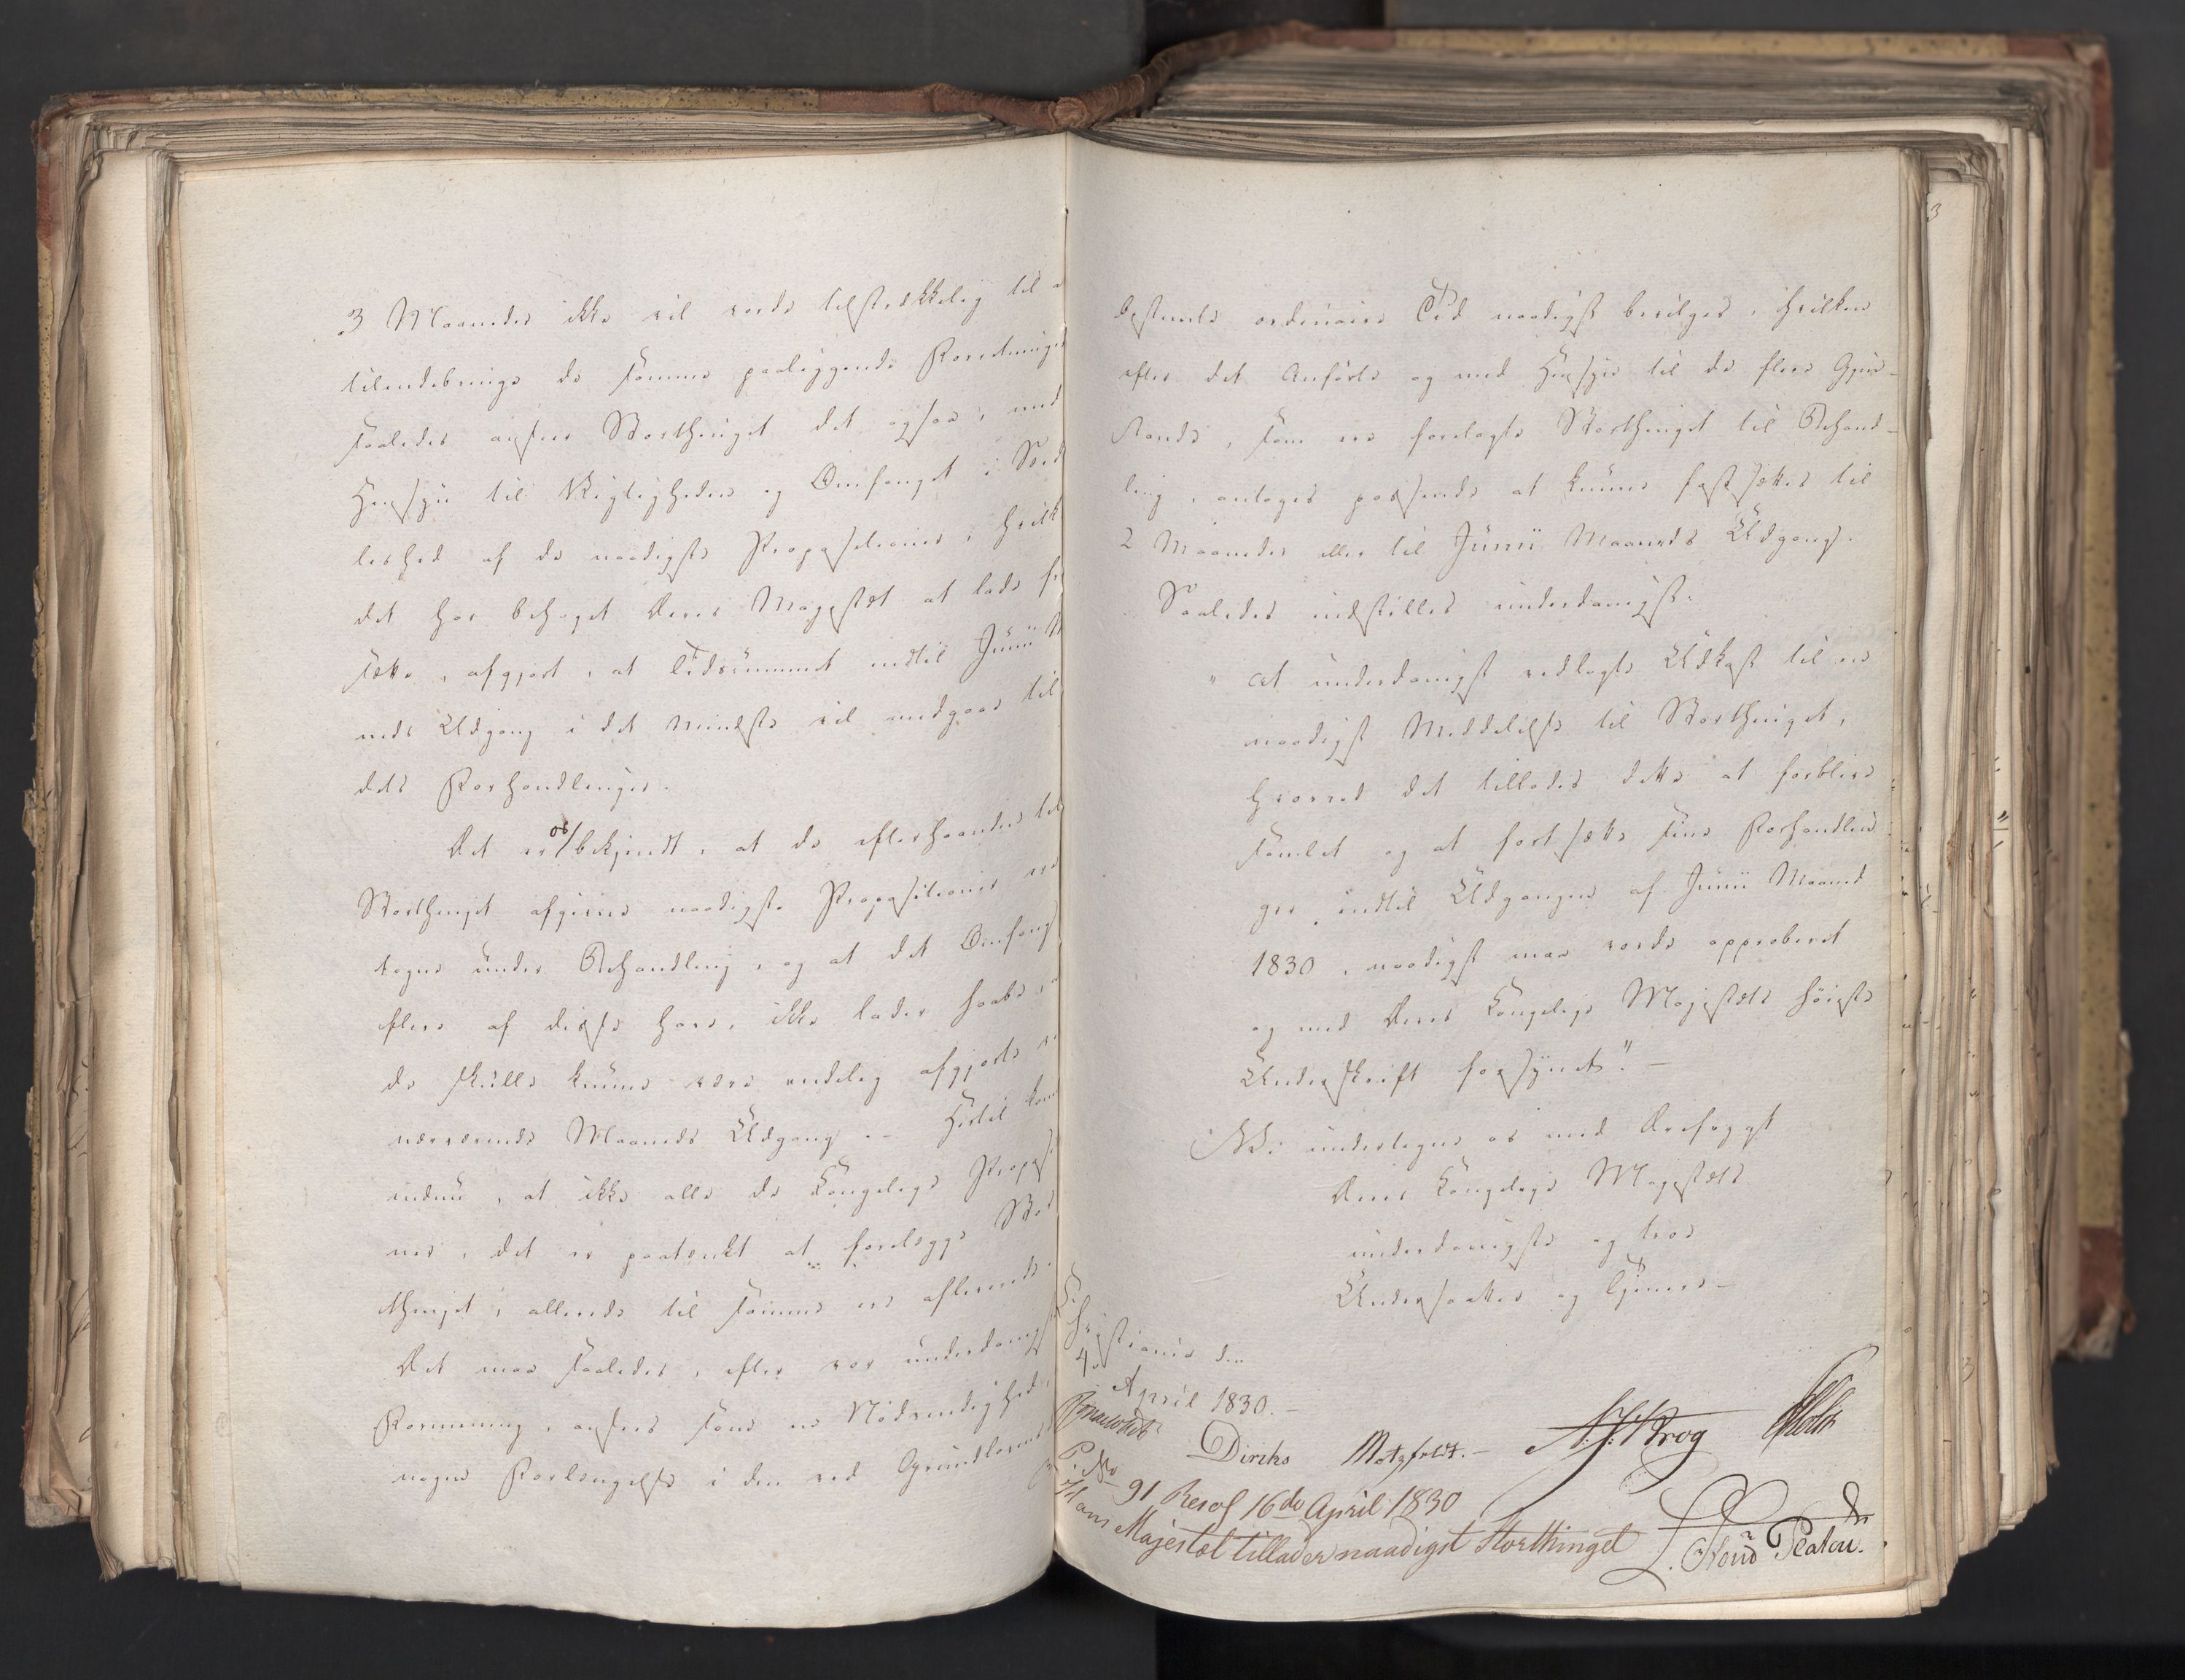 3 Maaneder ikke vil vorde tilstrækkelig til a
tilendebringe de samme paaliggende Forretninger
saaledes ansees Storthinget det ogsaa, med
Hensyn til Vigtigheden og Omfanget i Sær
leshed af de naadigste Propositioner, hvilk
det har behaget Deres Majestæt at lade fr
sætte, afgjort, at Tidsrummet indtil Junii M
neds Udgang i det mindste vil medgaae til
dets Forhandlinger.
Det er os bekjendt, at de efterhaanden til
Storthinget afgivne naadigste Propositioner ere
tagne under Behandling, og at det Omfang
flere af disse have, ikke lader haabe, a
de skulle kunne være endelig afgjorte v
nærværende Maaneds Udgang. - Hertil kom
endnu, at ikke alle de Kongelige Propos
ner, det er paatænkt at forelægge Stor
thinget, allerede til samme ere afleverede.
Det maa saaledes, efter vor underdanigst
Formening, ansees som en Nødvendighed,
nogen Forlængelse i den ved Grundloven
bestemte ordinaire Tid naadigst bevilges, hvilken
efter det Anførte og med Hensyn til de flere Gjen-
stande, som ere forelagte Storthinget til Behand-
ling, antages passende at kunne fastsættes til
2 Maaneder eller til Junii Maaneds Udgang.
Saaledes indstilles underdanigst:
" at underdanigst vedlagte Udkast til en
naadigst Meddelelse til Storthinget,
hvorved det tillades dette at forblive
samlet og at fortsætte sine Forhandlin
ger, indtil Udgangen af Junii Maaned
1830, naadigst maa vorde approberet
og med Deres Kongelige Majestæts høieste
Underskrift forsynet". -
Vi undertegne os med Ærefrygt
Deres Kongelige Majestæts
underdanigste og troe
Undersaatter og Tjenere -
Christiania den
4
April 1830. -
Diriks Motzfeldt. - Krog Holst
P: No 91 Resol 16de April 1830
Hans Majestæt tillader naadigst Storthinget
Platou.